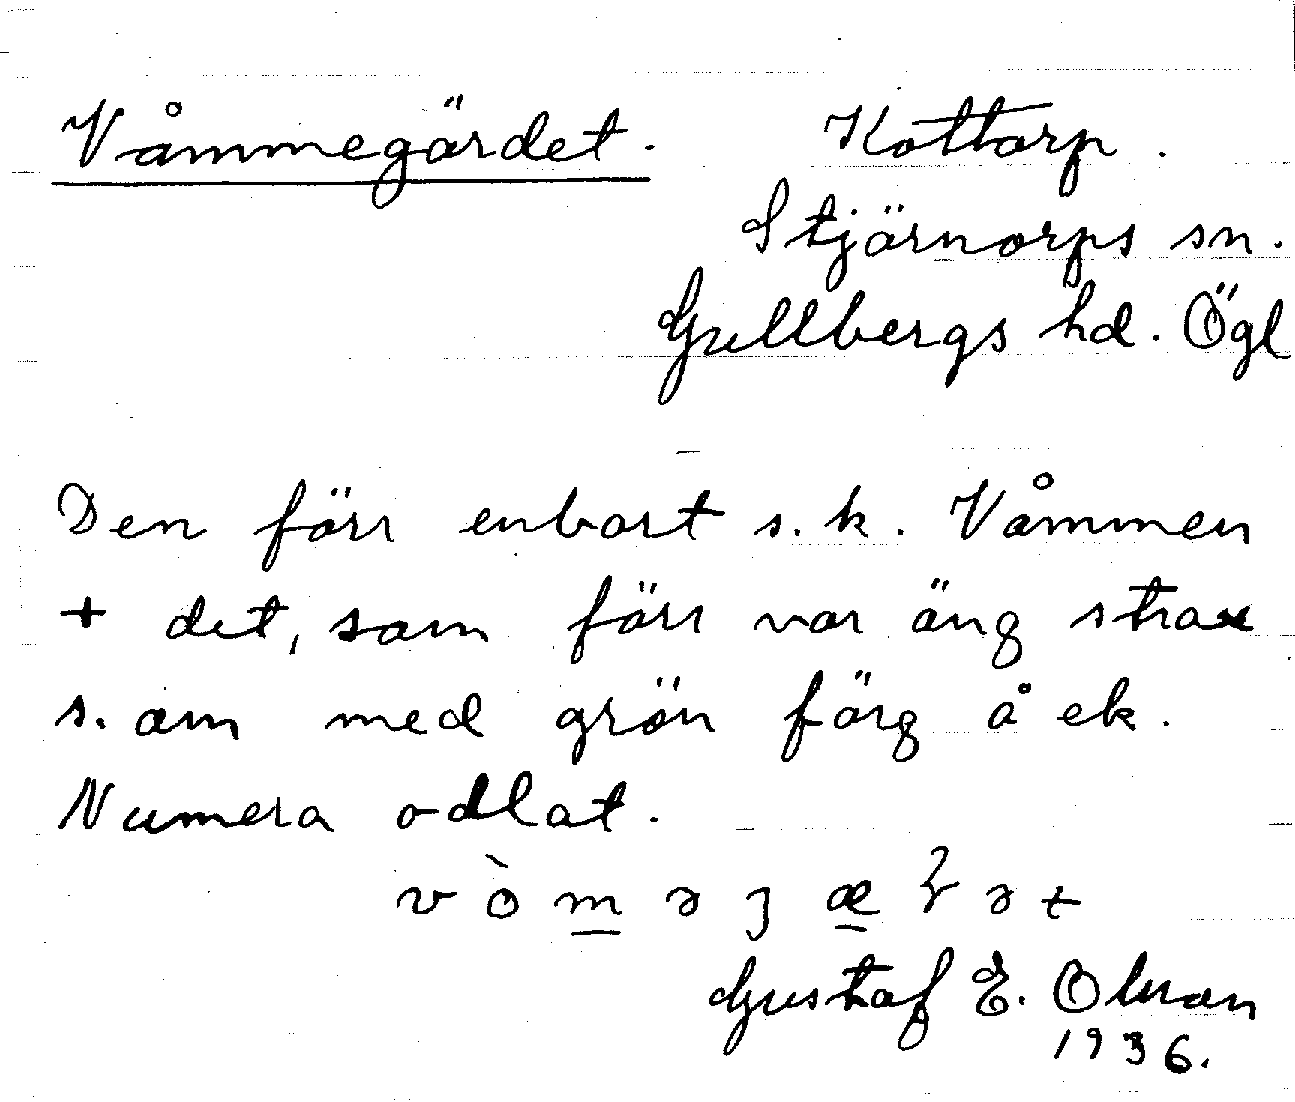 Våmmegärdet. Kottorp.
Stjärnorps sn.
Gullbergs hd. Ögl
Den förr enbart s.k. Våmmen
+ det, som förr var äng strax
s. om med grön färg å ek.
Numera odlat.
v ò m ə ȷ æ ə t
Gustaf E. Olsson
1936.